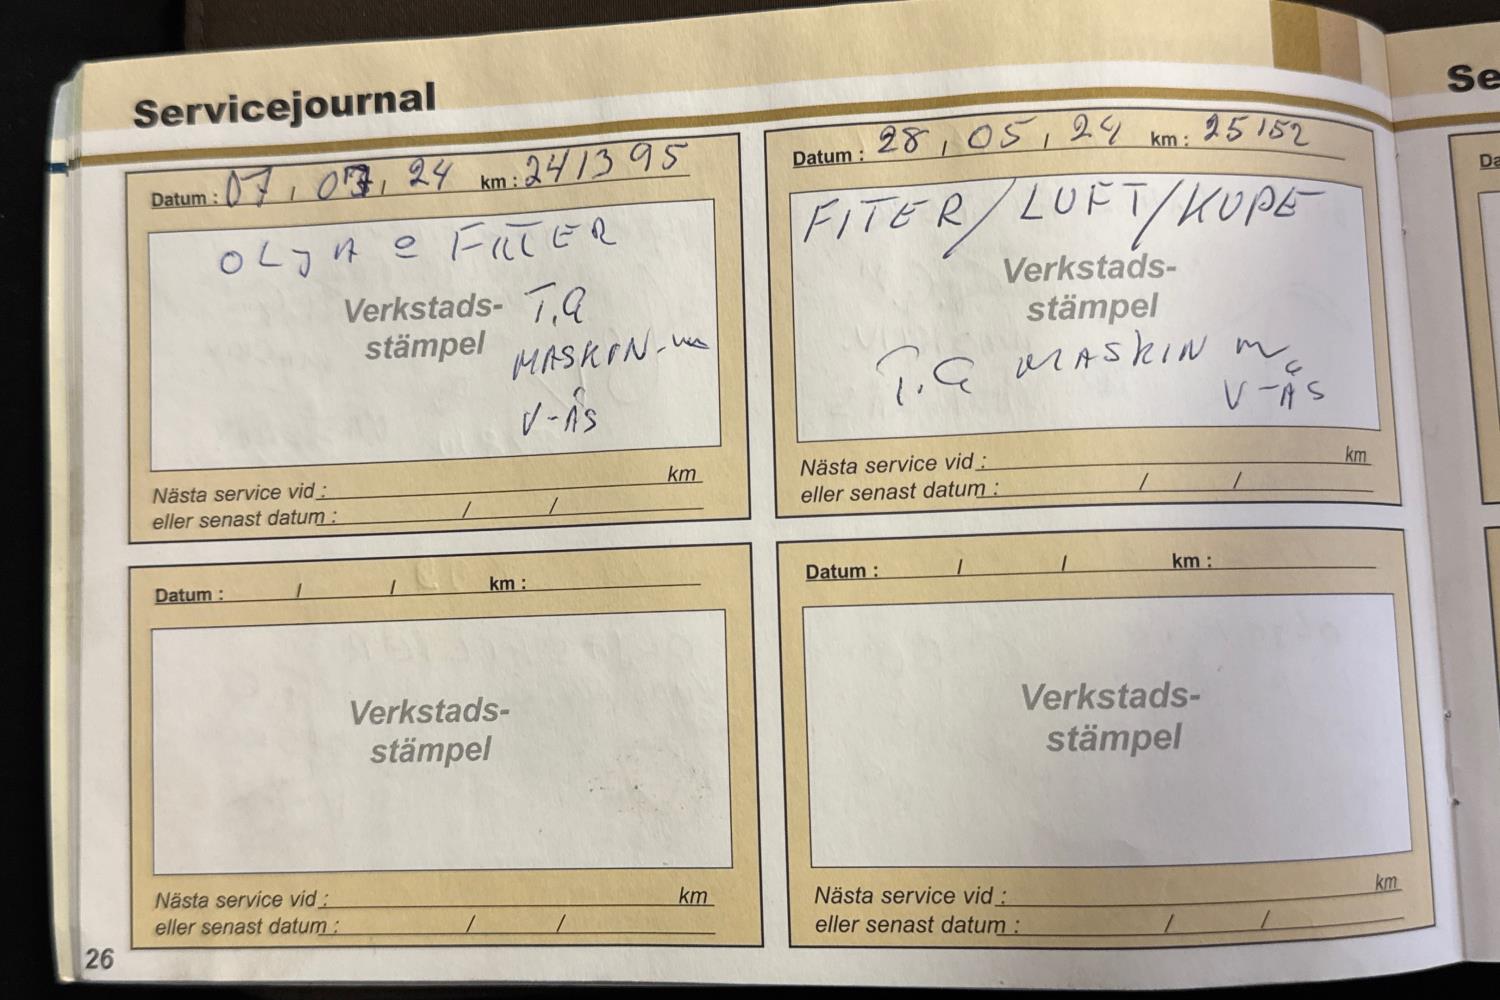 Servicejournal
Datum : 07, 07, 24 km : 241395
OLJA O FILTER
Verkstads-
stämpel
T.G
MASKIN-
V-ÅS
Nästa service vid : km
eller senast datum : / /
Datum : 28, 05, 24 km : 25152
FITER/LUFT/KUPE
Verkstads-
stämpel
T.G MASKIN
V-ÅS
Nästa service vid : km
eller senast datum : / /
Datum : / / km :
Verkstads-
stämpel
Nästa service vid : km
eller senast datum : / /
Datum : / / km :
Verkstads-
stämpel
Nästa service vid : km
eller senast datum : / /
26
Se
Da